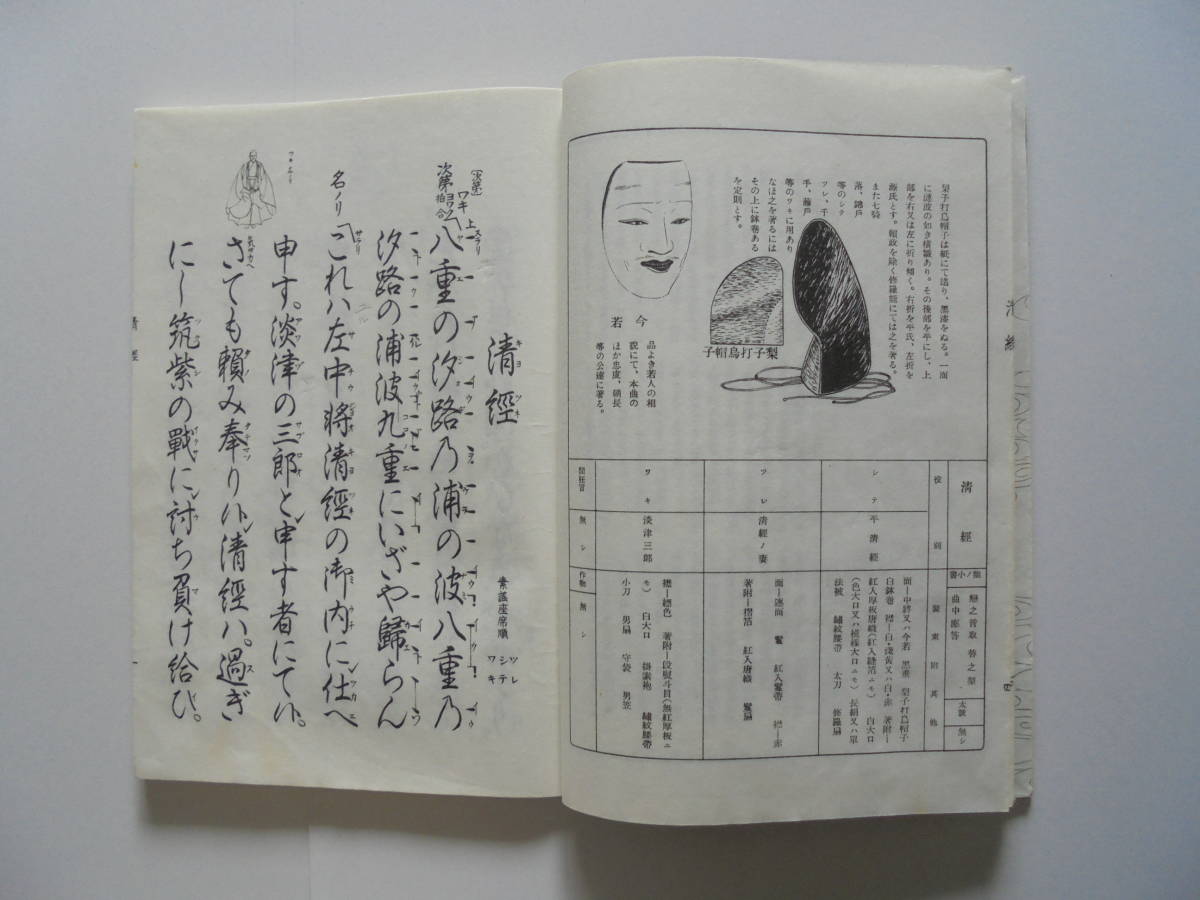 梨子打烏帽子は紙にて造り、黒漆をぬる。一面
に漣波の如き横皺あり。その後部を平にし、上
部を右又は左に折り傾く。右折を平氏、左折を
源氏とす。頼政を除く修羅能にては之を著る。
また七騎
落、錦戸
等のシテ
ツレ、千
手、藤戸
等のワキに用あり
なほ之を著るには
その上に鉢巻ある
を定則とす。
梨子打烏帽子
今若
品よき若人の相
貌にて、本曲の
ほか忠度、朝長
等の公達に著る。
清經
小書
戀之音取 替之型
曲中應答
太鼓
無シ
役別
裝束附其他
シテ
平清經
面―中將又ハ今若 黒垂 梨子打烏帽子
白鉢巻 襟―白・淺黄又ハ白・赤 著附―
紅入厚板唐織(紅入縫箔ニモ) 白大口
(色大口又ハ模樣大口ニモ) 長絹又ハ單
法被 繡紋腰帶 太刀 修羅扇
ツレ
清經ノ妻
面―連面 鬘 紅入鬘帶 襟―赤
著附―摺箔 紅入唐織 鬘扇
ワキ
淡津三郎
襟―標色 著附―段熨斗目(無紅厚板ニ
モ) 白大口 掛素袍 繡紋腰帶
小刀 男扇 守袋 男笠
間狂言
無シ
作物
無シ
清經
キヨツネ
素謡座席順
ツレ
シテ
ワキ
次第
ワキ 上
八重の汐路乃浦の波八重乃
汐路の浦波九重にいざや歸らん
名ノリ
これハ左中將清經の御内に仕へ
申す。淡津の三郎と申す者にて候。
さても頼み奉り候清經ハ。過ぎ
にし筑紫の戰に討ち負け給ひ。
清經
一